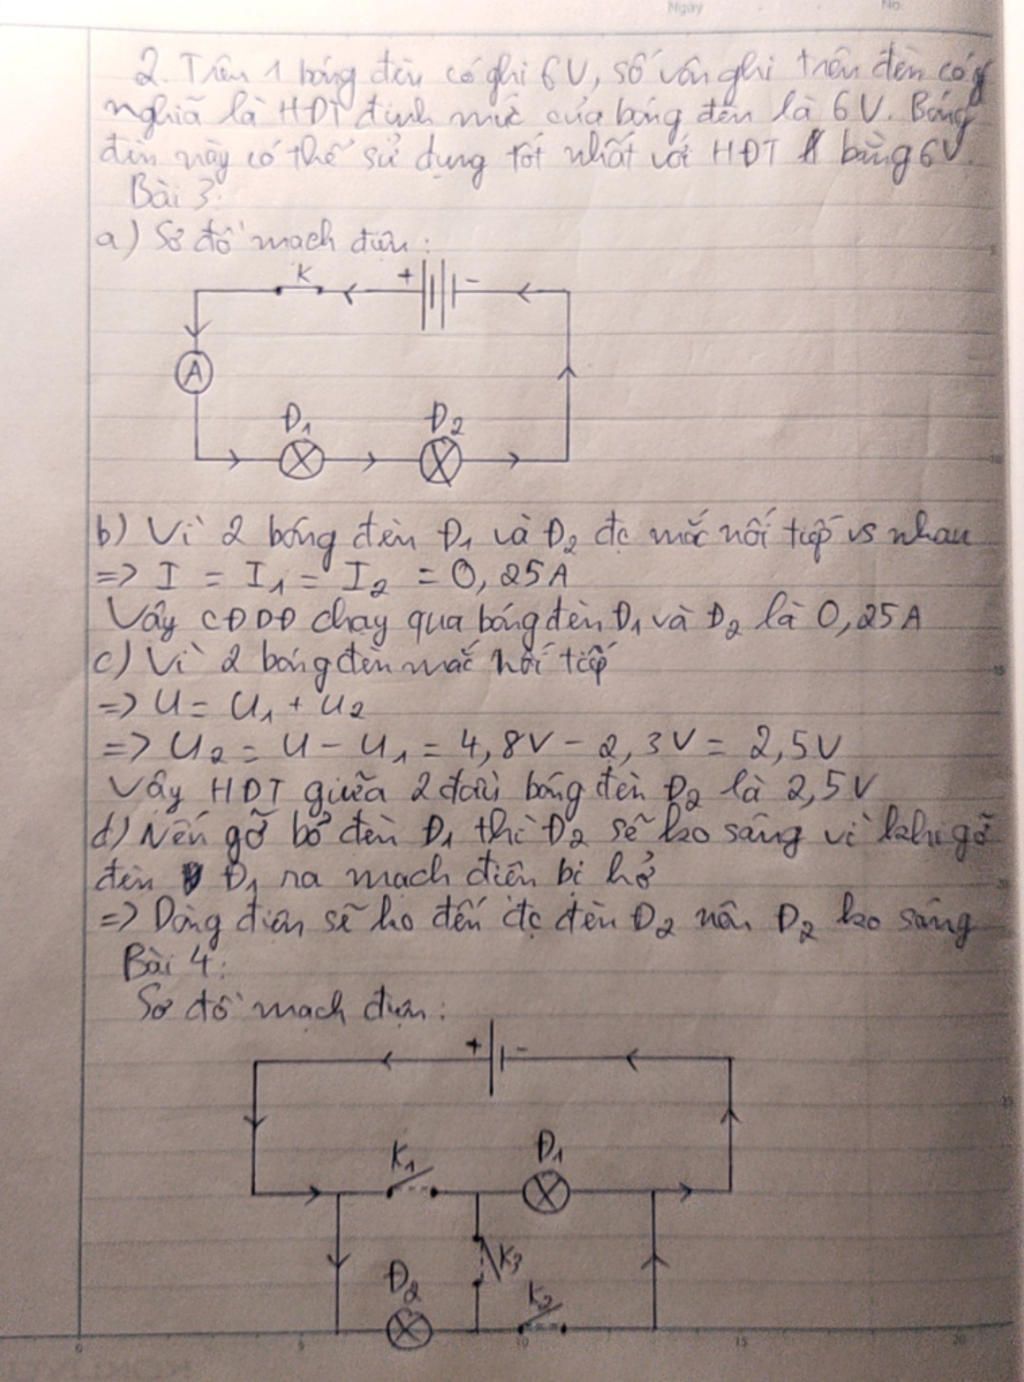 Ngày No.
2. Trên 1 bóng đèn có ghi 6V, số vôn ghi trên đèn có ý
nghĩa là HĐT định mức của bóng đèn là 6V. Bóng
đèn này có thể sử dụng tốt nhất với HĐT bằng 6V.
Bài 3:
a) Sơ đồ mạch điện:
K + -
A
Đ1 Đ2
b) Vì 2 bóng đèn Đ1 và Đ2 đc mắc nối tiếp vs nhau
=> I = I1 = I2 = 0,25A
Vậy CĐDĐ chạy qua bóng đèn Đ1 và Đ2 là 0,25A
c) Vì 2 bóng đèn mắc nối tiếp
=> U = U1 + U2
=> U2 = U - U1 = 4,8V - 2,3V = 2,5V
Vậy HĐT giữa 2 đầu bóng đèn Đ2 là 2,5V
d) Nếu gỡ bỏ đèn Đ1 thì Đ2 sẽ ko sáng vì khi gỡ
đèn Đ1 ra mạch điện bị hở
=> Dòng điện sẽ ko đến đc đèn Đ2 nên Đ2 ko sáng
Bài 4:
Sơ đồ mạch điện:
+ -
K1 Đ1
K3
Đ2 K2
0 5 10 15 20